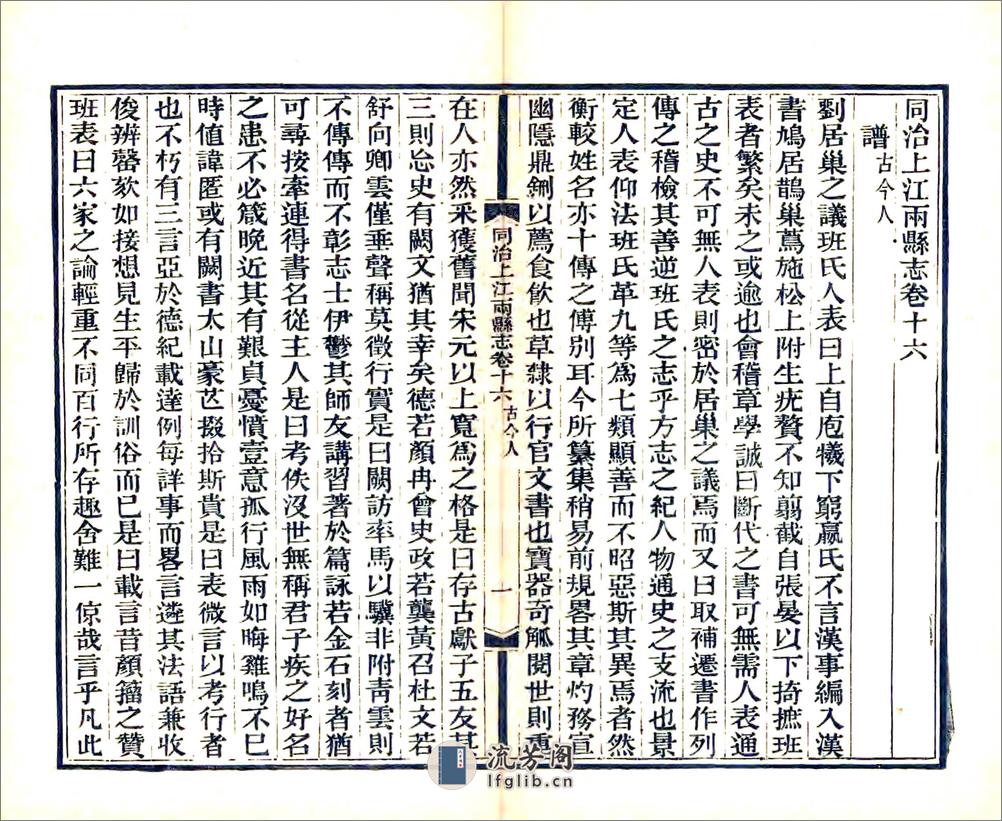 同治上江兩縣志卷十六
譜古今人
劉居巢之議班氏人表曰上自庖犧下窮嬴氏不言漢事編入漢
書鳩居鵲巢蔦施松上附生疣贅不知翦截自張晏以下掎摭班
表者繁矣未之或逾也會稽章學誠曰斷代之書可無需人表通
古之史不可無人表則密於居巢之議焉而又曰取補遷書作列
傳之稽檢其善逆班氏之志乎方志之紀人物通史之支流也景
定人表仰法班氏革九等爲七類顯善而不昭惡斯其異焉者然
衡較姓名亦十傳之傅別耳今所纂集稍易前規畧其章灼務宣
幽隱鼎鉶以薦食飲也草隸以行官文書也寶器奇觚閱世則重
同治上江兩縣志卷十六 古今人
一
在人亦然采獲舊聞宋元以上寬爲之格是曰存古獻子五友其
三則忘史有闕文猶其幸矣德若顏冉曾史政若龔黃召杜文若
舒向卿雲僅垂聲稱莫徵行實是曰闕訪率馬以驥非附青雲則
不傳傳而不彰志士伊鬱其師友講習著於篇詠若金石刻者猶
可尋按牽連得書名從主人是曰考佚沒世無稱君子疾之好名
之患不必箴晚近其有艱貞憂憤壹意孤行風雨如晦雞鳴不已
時値諱匿或有闕書太山豪芒掇拾斯貴是曰表微言以考行者
也不朽有三言亞於德紀載達例每詳事而畧言遴其法語兼收
俊辨謦欬如接想見生平歸於訓俗而已是曰載言昔顏籀之贊
班表曰六家之論輕重不同百行所存趣舍難一諒哉言乎凡此
流芳閣
lfglib.cn